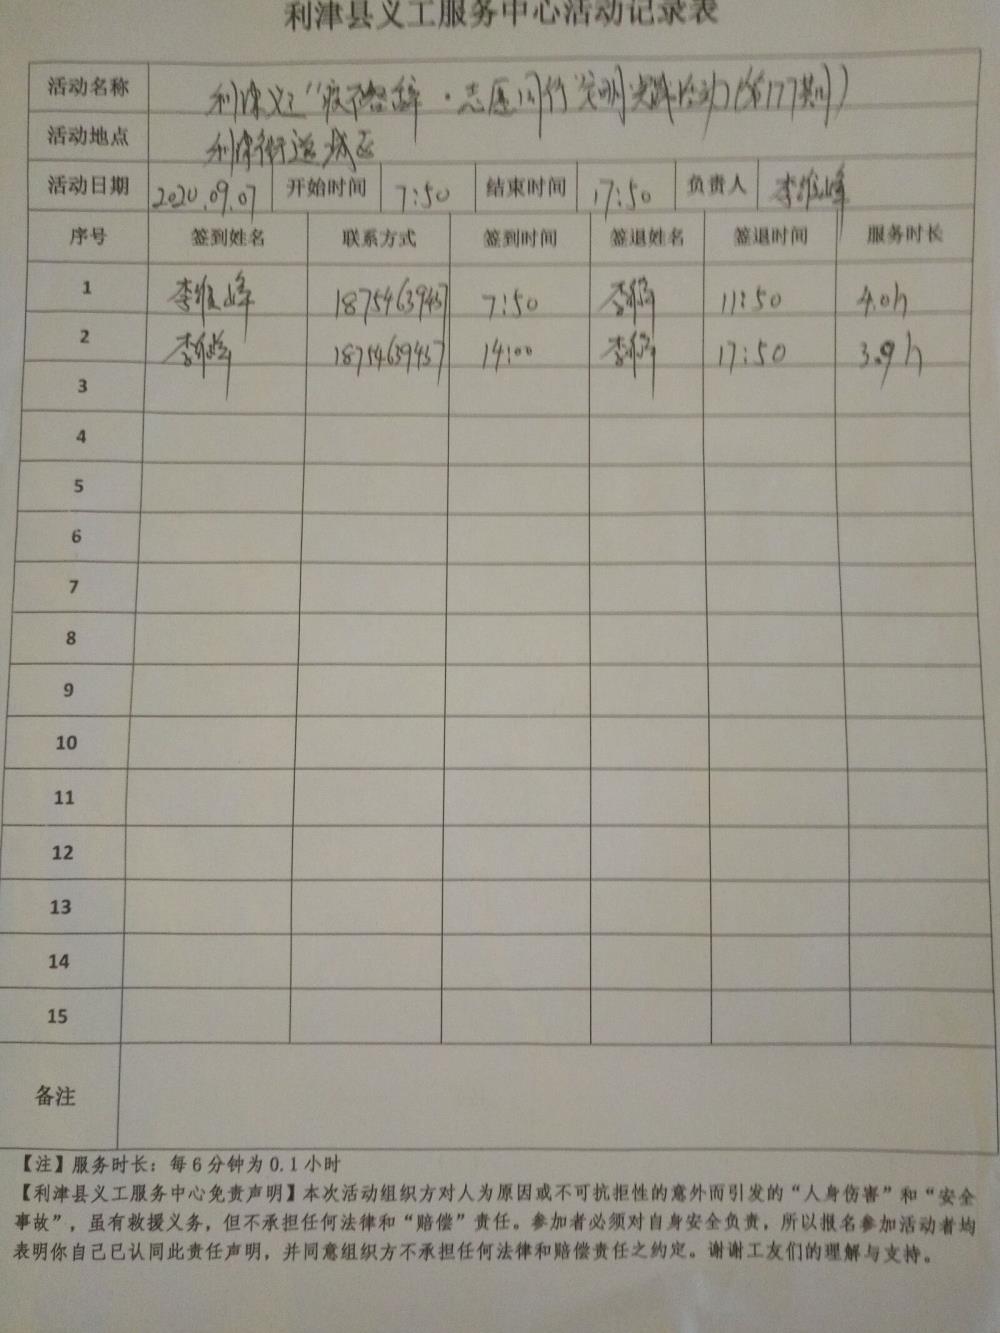 利津县义工服务中心活动记录表
活动名称 利津义工"疫不容辞·志愿同行"文明实践活动(第177期)
活动地点 利津街道城区
活动日期 2020.09.07 开始时间 7:50 结束时间 17:50 负责人 李维峰
序号 签到姓名 联系方式 签到时间 签退姓名 签退时间 服务时长
1 李维峰 18754639457 7:50 李维峰 11:50 4.0h
2 李维峰 18754639457 14:00 李维峰 17:50 3.9h
3
4
5
6
7
8
9
10
11
12
13
14
15
备注
【注】服务时长：每6分钟为0.1小时
【利津县义工服务中心免责声明】本次活动组织方对人为原因或不可抗拒性的意外而引发的“人身伤害”和“安全
事故”，虽有救援义务，但不承担任何法律和“赔偿”责任。参加者必须对自身安全负责，所以报名参加活动者均
表明你自己已认同此责任声明，并同意组织方不承担任何法律和赔偿责任之约定。谢谢工友们的理解与支持。